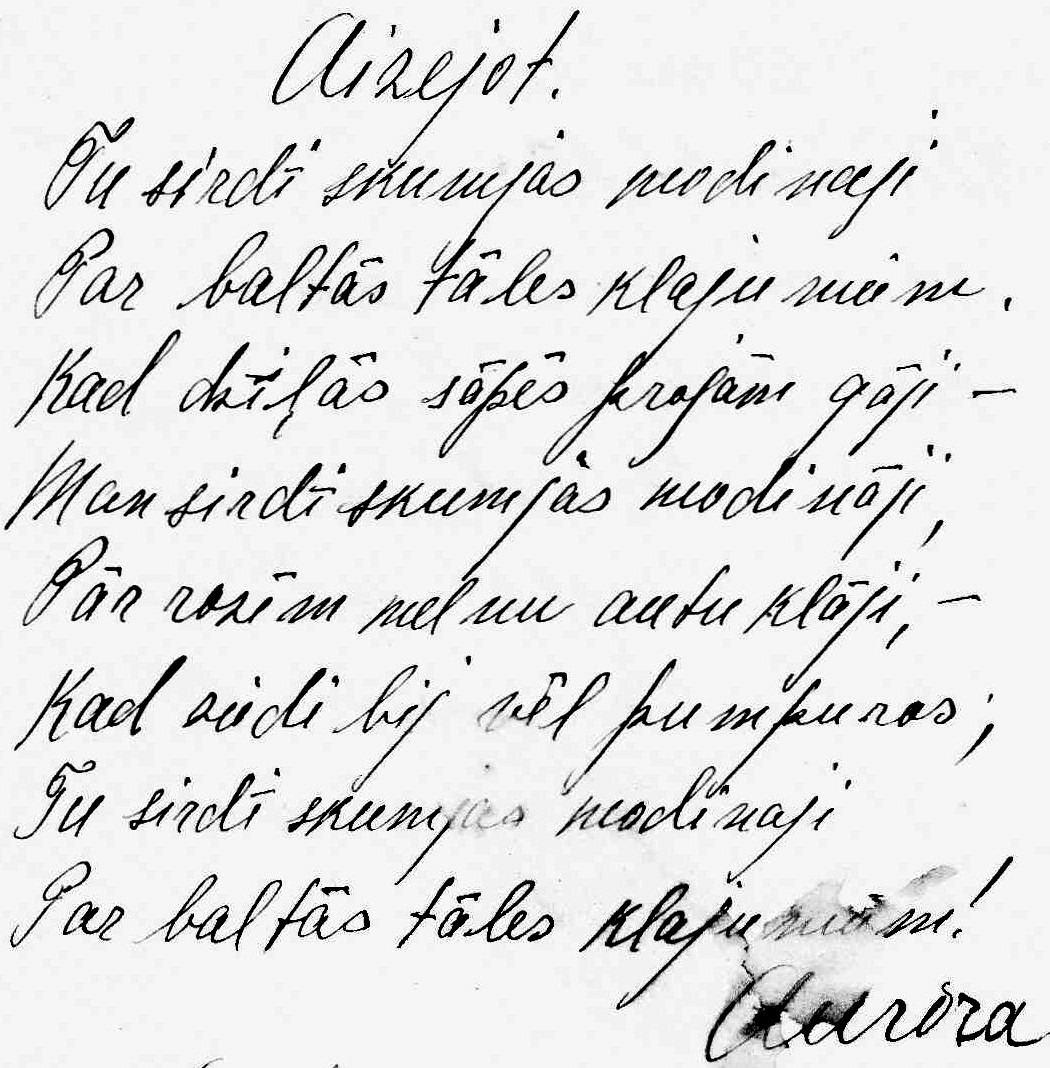 Aizejot.
Tu sirdī skumjas modināji
Par baltās tāles klajumiem.
Kad dziļās sāpēs projām gāji –
Man sirdī skumjas modināji,
Pār rozēm melnu autu klāji, –
Kad ziedi bij vēl pumpuros;
Tu sirdī skumjas modinaji
Par baltās tāles klajumiem!
Auróra